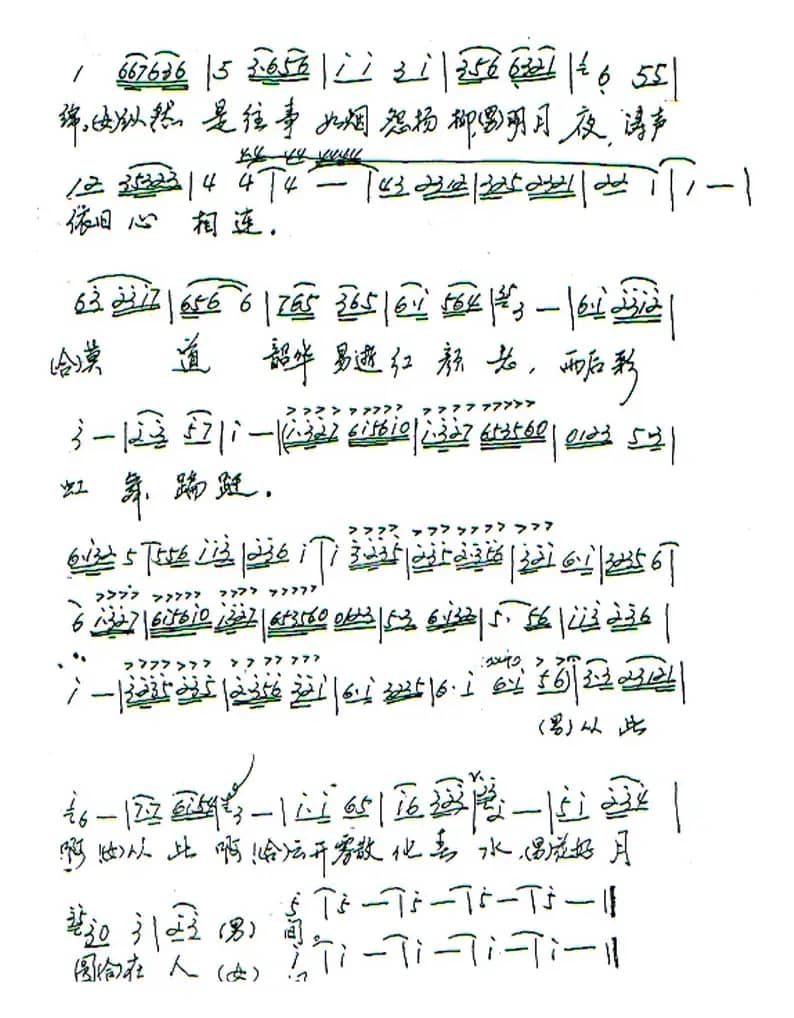 1 667636 | 5 3·656 | i i 3 i | 356 6321 | 6 55 |
绵,(女)纵然 是往事 如烟 怨杨柳,(男)明月 夜,涛声
12 35323 | 4 4 | 4 — | 43 2312 | 325 2221 | 22 i | i — |
依旧 心 相连.
63 2317 | 656 6 | 765 365 | 6·i 564 | 3 — | 6·i 2312 |
(合)莫 道 韶华 易逝 红 颜 老, 雨后彩
3 — | 2·3 57 | i — | (i·327 615610 | i·327 653560 | 0123 5·3 |
虹 舞 蹁跹.
6·132 5 | 556 113 | 236 i | i 3·235 | 235 2·356 | 321 6·i | 3235 6 |
6 1·327 | 615610 1327 | 653560 0123 | 53 6·132 | 5· 56 | 113 236 |
i — | 3235 235 | 2·356 321 | 6·i 3235 | 6·i 6·i 56) | 3·3 23121 |
(男)从 此
6 — | 7·7 6154 | 3 — | i·i 65 | i6 323 | 2 — | 5i 234 |
啊 (女)从 此 啊 (合)云开雾散 化春 水,(男)花好 月
30 3 | 23 (男) 5 | 5 — | 5 — | 5 — | 5 — ‖
圆(合)在 人 (女) 间。 i | i — | i — | i — | i — ‖